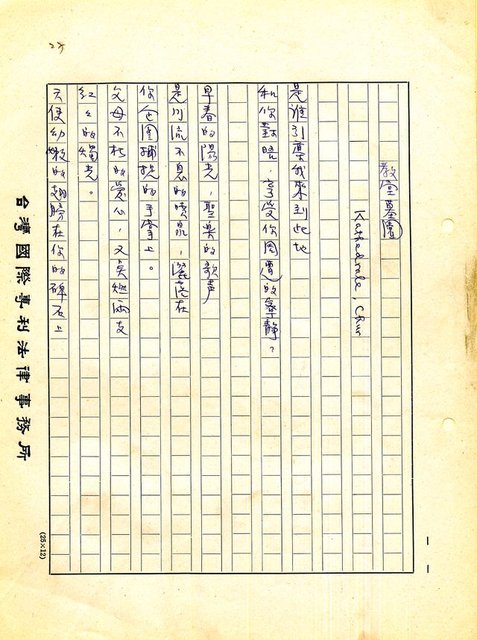 教堂墓園
Kathedrale, Chur
是誰引導我來到此地
和你對晤，享受你周遭的寧靜？
早春的陽光，聖樂的歌声
是川流不息的噴泉，灑落在
你企圖捕捉的手掌上。
父母不朽的愛心，又点燃兩支
紅々的燭光。
天使幼嫩的翅膀在你的碑石上
台灣國際專利法律事務所
(25×12)